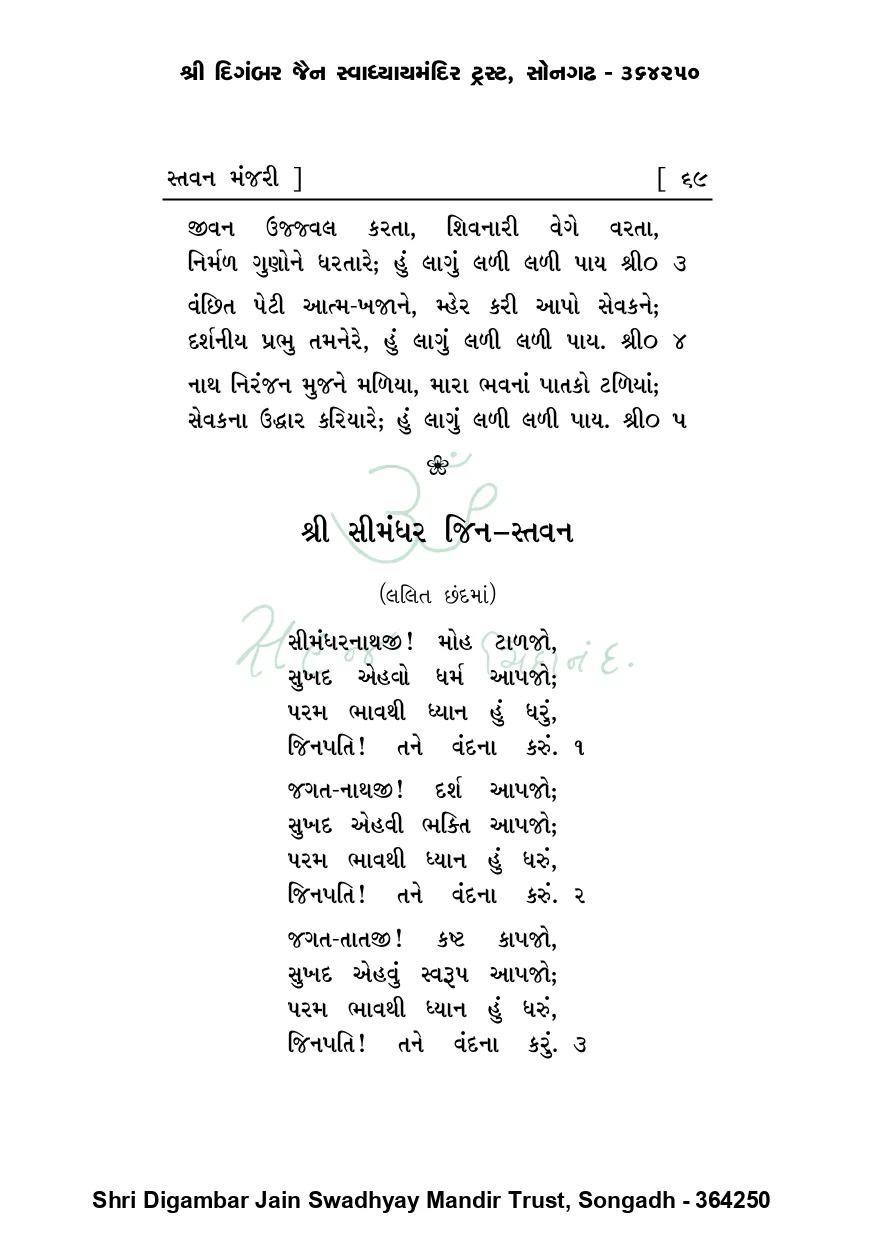 શ્રી દિગંબર જૈન સ્વાધ્યાયમંદિર ટ્રસ્ટ, સોનગઢ - ૩૬૪૨૫૦
સ્તવન મંજરી ] [ ૬૯
જીવન ઉજ્જ્વલ કરતા, શિવનારી વેગે વરતા,
નિર્મળ ગુણોને ધરતારે; હું લાગું લળી લળી પાય શ્રી૦ ૩
વંછિત પેટી આત્મ-ખજાને, મ્હેર કરી આપો સેવકને;
દર્શનીય પ્રભુ તમનેરે, હું લાગું લળી લળી પાય. શ્રી૦ ૪
નાથ નિરંજન મુજને મળિયા, મારા ભવનાં પાતકો ટળિયાં;
સેવકના ઉદ્ધાર કરિયારે; હું લાગું લળી લળી પાય. શ્રી૦ ૫
શ્રી સીમંધર જિન–સ્તવન
(લલિત છંદમાં)
સીમંધરનાથજી! મોહ ટાળજો,
સુખદ એહવો ધર્મ આપજો;
પરમ ભાવથી ધ્યાન હું ધરું,
જિનપતિ! તને વંદના કરું. ૧
જગત-નાથજી! દર્શ આપજો;
સુખદ એહવી ભક્તિ આપજો;
પરમ ભાવથી ધ્યાન હું ધરું,
જિનપતિ! તને વંદના કરું. ૨
જગત-તાતજી! કષ્ટ કાપજો,
સુખદ એહવું સ્વરૂપ આપજો;
પરમ ભાવથી ધ્યાન હું ધરું,
જિનપતિ! તને વંદના કરું. ૩
Shri Digambar Jain Swadhyay Mandir Trust, Songadh - 364250